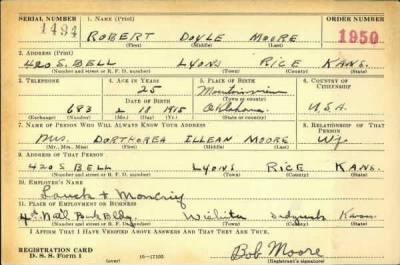 SERIAL NUMBER 1. NAME (Print) ORDER NUMBER
1494 ROBERT DOYLE MOORE 1950
(First) (Middle) (Last)
2. ADDRESS (Print)
420 S. BELL LYONS RICE KANS.
(Number and street or R. F. D. number) (Town) (County) (State)
3. TELEPHONE 4. AGE IN YEARS 5. PLACE OF BIRTH 6. COUNTRY OF CITIZENSHIP
25 Mountainview
DATE OF BIRTH (Town or county)
683 2 18 1915 Oklahoma U.S.A.
(Exchange) (Number) (Mo.) (Day) (Yr.) (State or country)
7. NAME OF PERSON WHO WILL ALWAYS KNOW YOUR ADDRESS 8. RELATIONSHIP OF THAT PERSON
Mrs. DORTHOREA ILLEAN MOORE
(Mr., Mrs., Miss) (First) (Middle) (Last)
9. ADDRESS OF THAT PERSON
420 S BELL LYONS RICE KANS.
(Number and street or R. F. D. number) (Town) (County) (State)
10. EMPLOYER'S NAME
11. PLACE OF EMPLOYMENT OR BUSINESS
4th Nat'l Bank Bldg. Wichita Sedgwick Kans.
(Number and street or R. F. D. number) (Town) (County) (State)
I AFFIRM THAT I HAVE VERIFIED ABOVE ANSWERS AND THAT THEY ARE TRUE.
REGISTRATION CARD
D. S. S. Form 1 (over) 16-17105
Bob Moore
(Registrant's signature)